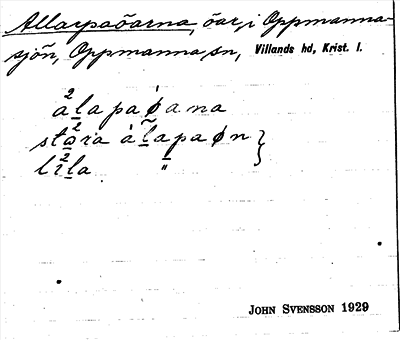 Allarpaöarna, öar, i Oppmanna-
sjön, Oppmanna sn, Villands hd, Krist. l.
alapaøana
stora àlapaøn
lila "
JOHN SVENSSON 1929